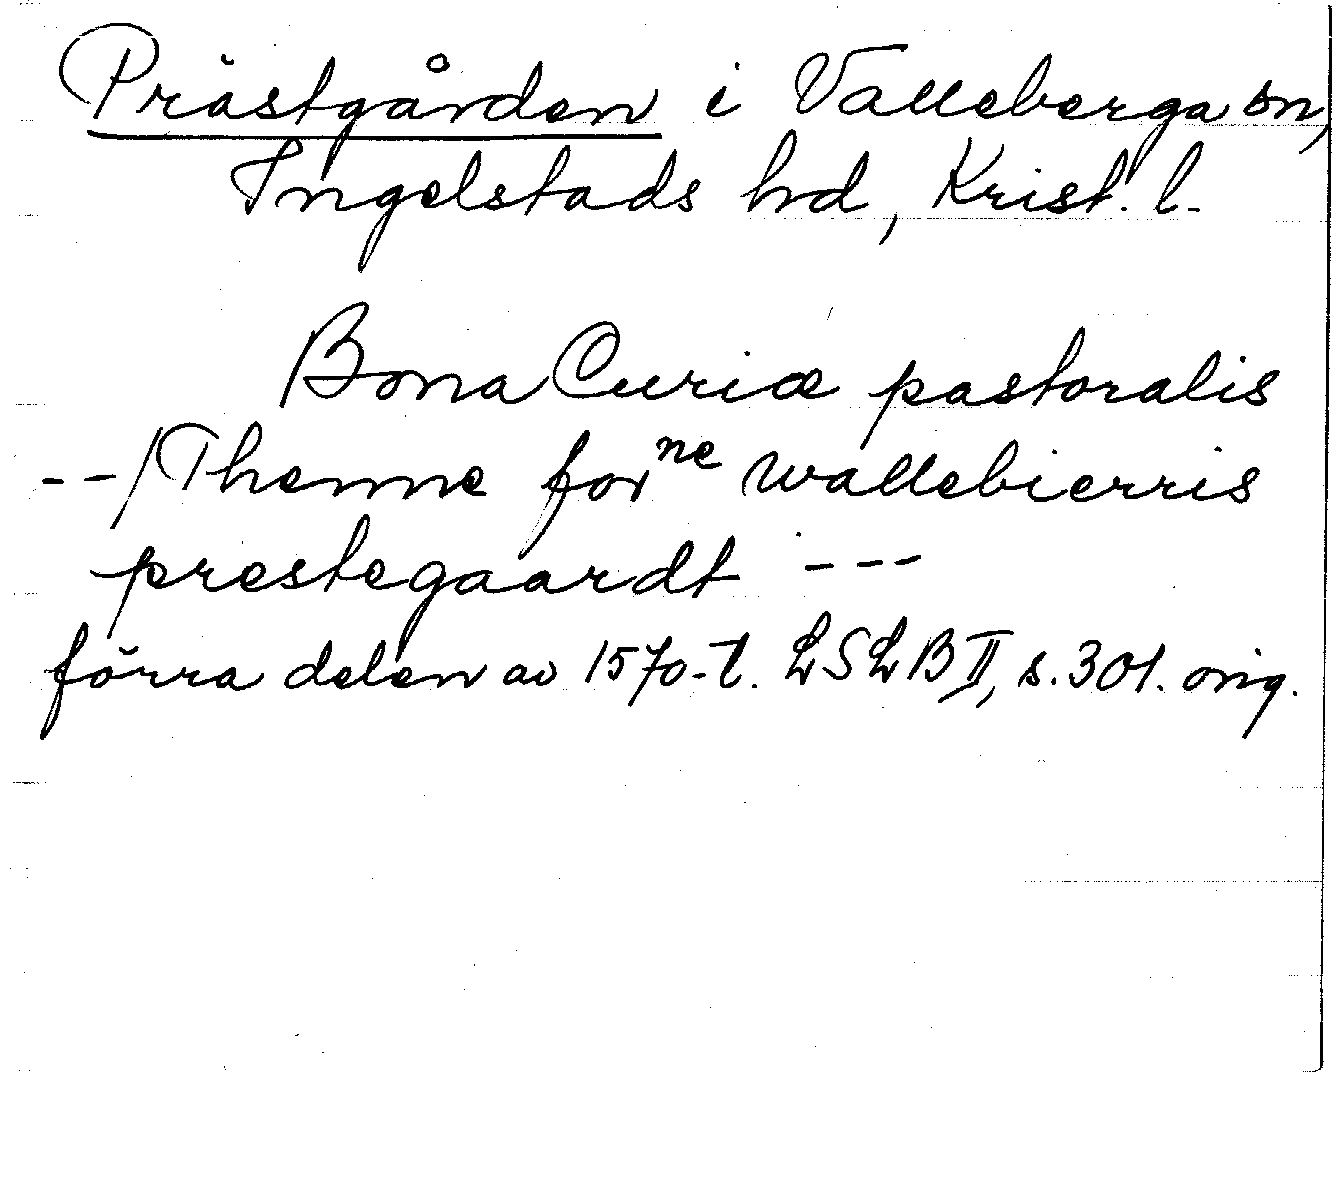 Prästgården i Valleberga sn,
Ingelstads hd, Krist. l.
Bona Curiæ pastoralis
--/Thenne forⁿᵉ wallebierris
prestegaardt ---
förra delen av 1570-t. LSLB II, s. 301. orig.